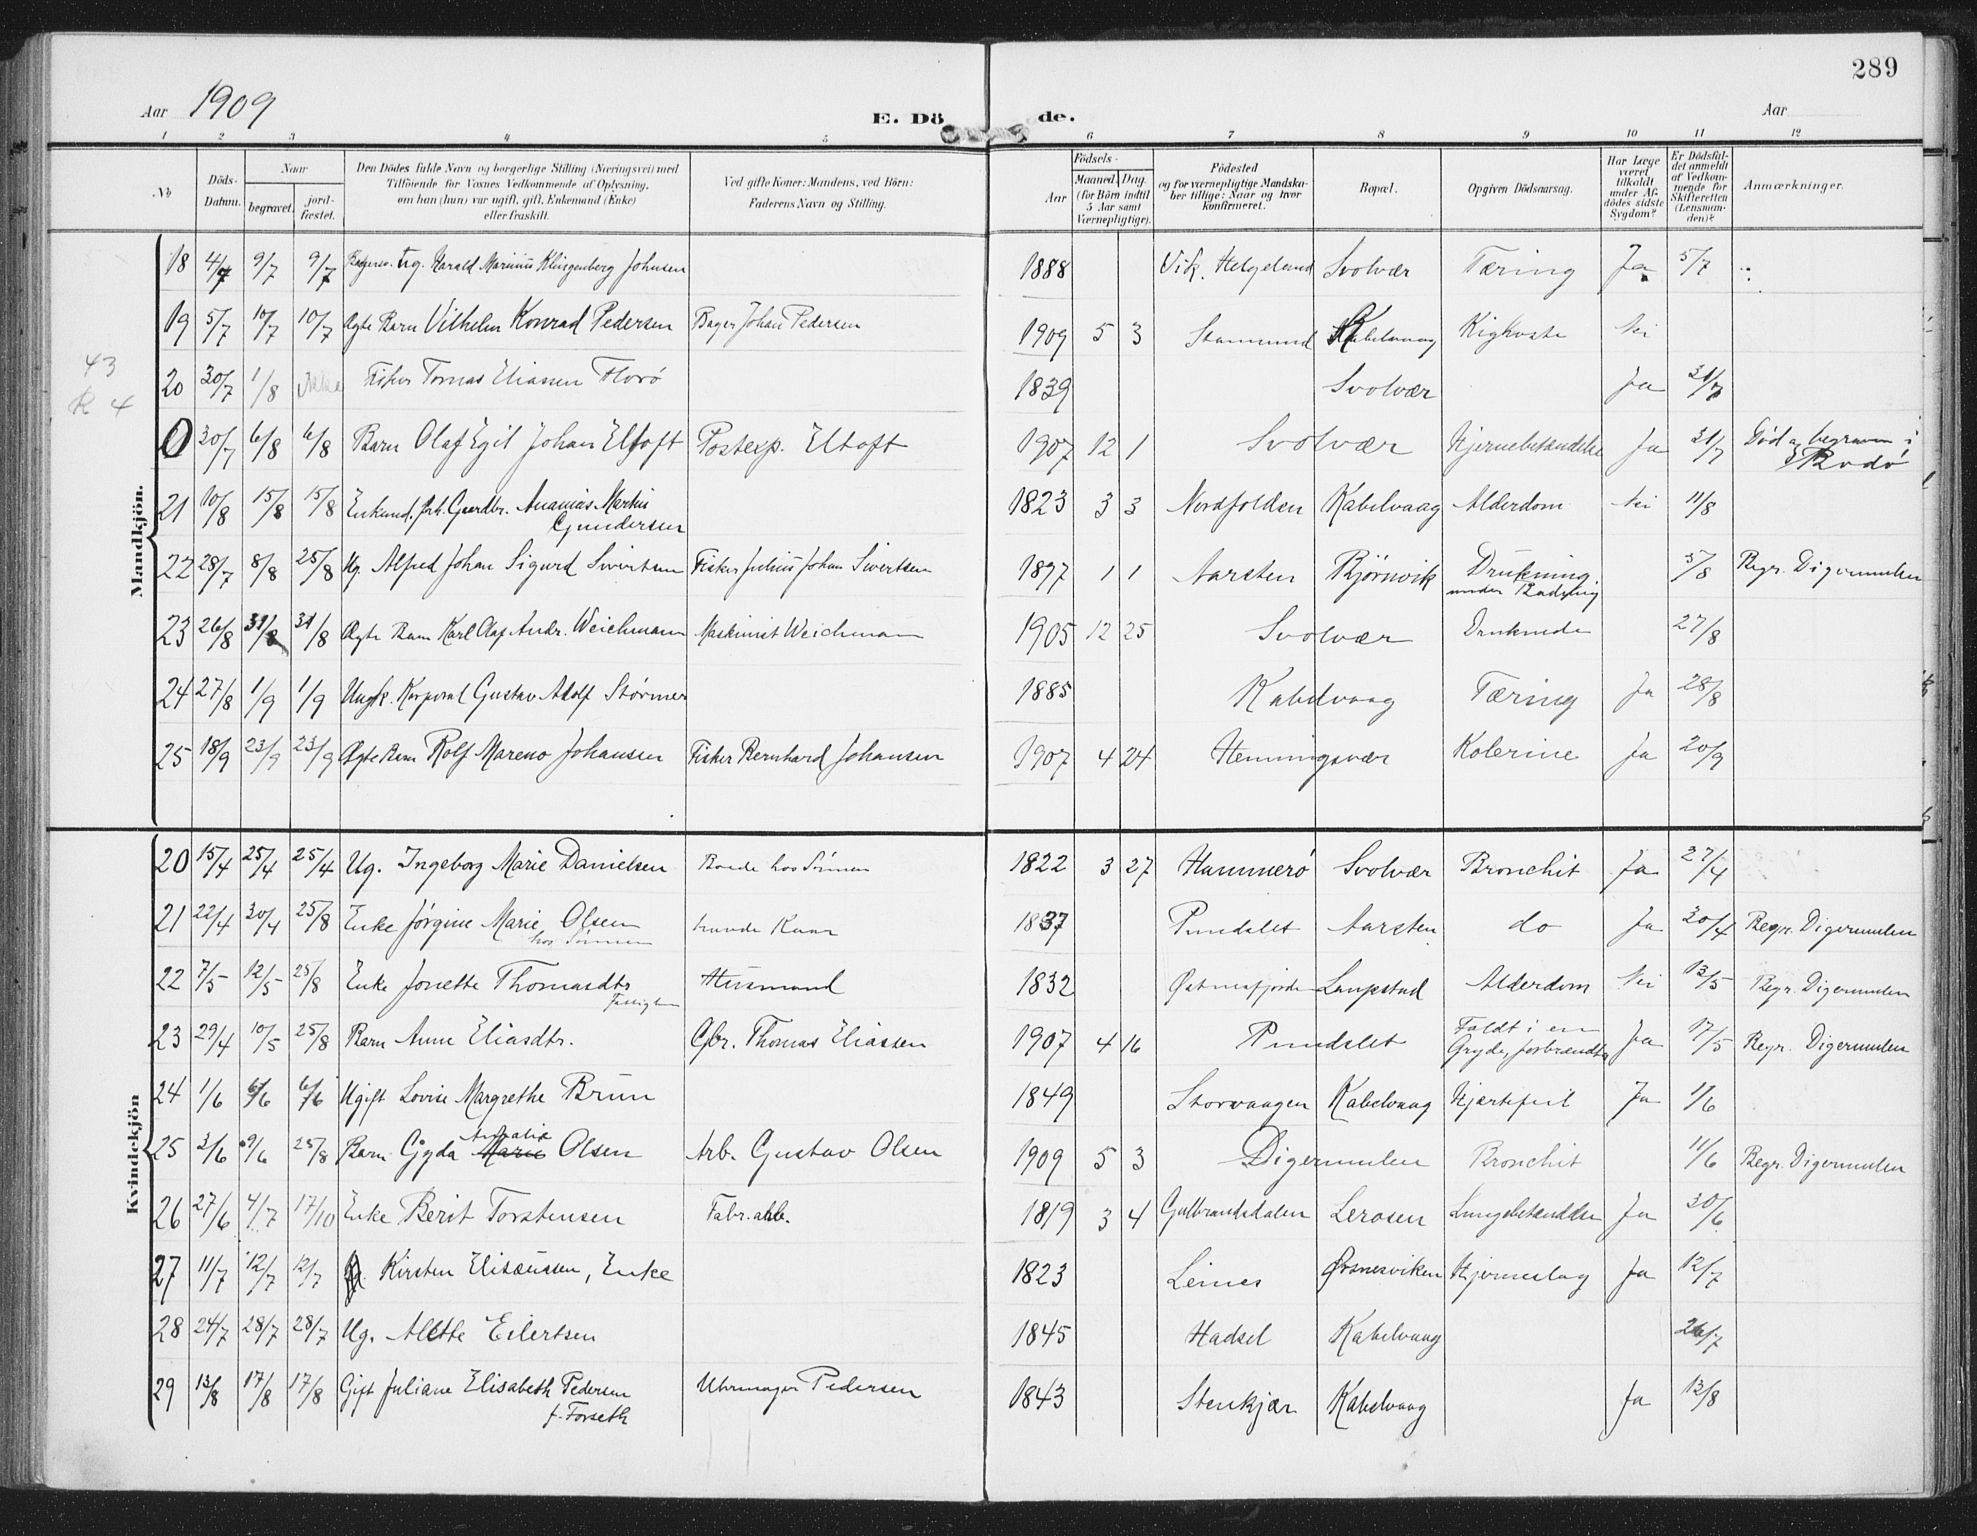 289
Aar 1909
E. Dö de.
Aar
1 2 3 4 5 6 7 8 9 10 11 12
No
Döds-Datum.
Naar
begravet.
jord-fæstet.
Den Dödes fulde Navn og borgerlige Stilling (Næringsvei) med
Tilföiende for Voxnes Vedkommende af Oplysning,
om han (hun) var ugift, gift, Enkemand (Enke)
eller fraskilt.
Ved gifte Koner: Mandens, ved Börn:
Faderens Navn og Stilling.
Födsels-
Aar
Maaned. Dag.
(for Börn indtil
5 Aar samt
Værnepligtige).
Födested
og for værnepligtige Mandska-
ber tillige: Naar og hvor
konfirmeret.
Bopæl.
Opgiven Dödsaarsag.
Har Læge
været
tilkaldt
under Af-
dödes sidste
Sygdom?
Er Dödsfal-
det anmeldt
af Vedkom-
mende for
Skifteretten
(Lensman-
den)?
Anmærkninger.
Mandkjön.
18 4/7 9/7 9/7 Harald Marinius Klingenberg Johnsen 1888 Vik, Helgeland Svolvær Tæring Ja 5/7
19 5/7 10/7 10/7 Ægte Barn Vilhelm Konrad Pedersen Bager Johan Pedersen 1909 5 3 Stamsund Kabelvaag Kighoste Nei
43
R 4
20 30/7 1/8 ikke Fisker Tomas Eliassen Florø 1839 Svolvær Ja 31/7
0 30/7 6/8 6/8 Barn Olaf Egil Johan Eltoft Postexp. Eltoft 1907 12 1 Svolvær Hjernebetændelse Ja 31/7 Død og begraven i
Bodø
21 10/8 15/8 15/8 Enkemd. Gaardbr. Ananias Martin
Gundersen 1823 3 3 Nordfolden Kabelvaag Alderdom Nei 11/8
22 28/7 8/8 25/8 Ug. Alfred Johan Sigurd Sivertsen Fisker Julius Johan Sivertsen 1897 1 1 Aarsten Bjørnvik Drukning 5/8 Begr. Digermulen
under Badning
23 26/8 31/8 31/8 Ægte Barn Karl Olaf Andr. Weichmann Maskinist Weichmann 1905 12 25 Svolvær Druknede 27/8
24 27/8 1/9 1/9 Ungk. Korporal Gustav Adolf Størmer 1885 Kabelvaag Tæring Ja 28/8
25 18/9 23/9 23/9 Ægte Barn Rolf Mareno Johansen Fisker Bernhard Johansen 1907 4 24 Henningsvær Kolerine Ja 20/9
Kvindekjön
20 15/4 25/4 25/4 Ug. Ingeborg Marie Danielsen Boede hos Sönnen 1822 3 27 Hammerø Svolvær Bronchit Ja 27/4
21 22/4 30/4 25/8 Enke Jørgine Marie Olsen Kaar 1837 Pundslet Aarsten do Ja 30/4 Begr. Digermulen
hos Sönnen
22 7/5 12/5 25/8 Enke Jonette Thomasdtr Husmand 1832 Laupstad Alderdom Nei 13/5 Begr. Digermulen
23 29/4 10/5 25/8 Barn Anne Eliasdtr. Gbr. Thomas Eliassen 1907 4 16 Pundslet Faldt i en
Gryde, forbrændt Ja 17/5 Begr. Digermulen
24 1/6 6/6 6/6 Ugift Lovise Margrethe Brun 1849 Storvaagen Kabelvaag Hjertefeil Ja 1/6
25 3/6 9/6 25/8 Barn Gyda Marie Olsen Arb. Gustav Olsen 1909 5 3 Digermulen Bronchit 11/6 Begr. Digermulen
26 27/6 4/7 17/10 Enke Berit Torstensen Fabr.arb. 1819 3 4 Gulbrandsdalen Lerosen Lungebetændelse Ja 30/6
27 11/7 12/7 12/7 Kirsten Elisæussen, Enke 1823 Leines Ørsnesviken Hjerneslag Ja 12/7
28 24/7 28/7 28/7 Ug. Alette Eilertsen 1845 Hadsel Kabelvaag 26/7
29 13/8 17/8 17/8 Gift Juliane Elisabeth Pedersen Uhrmager Pedersen 1843 Stenkjær Kabelvaag Ja 13/8
f. Forseth